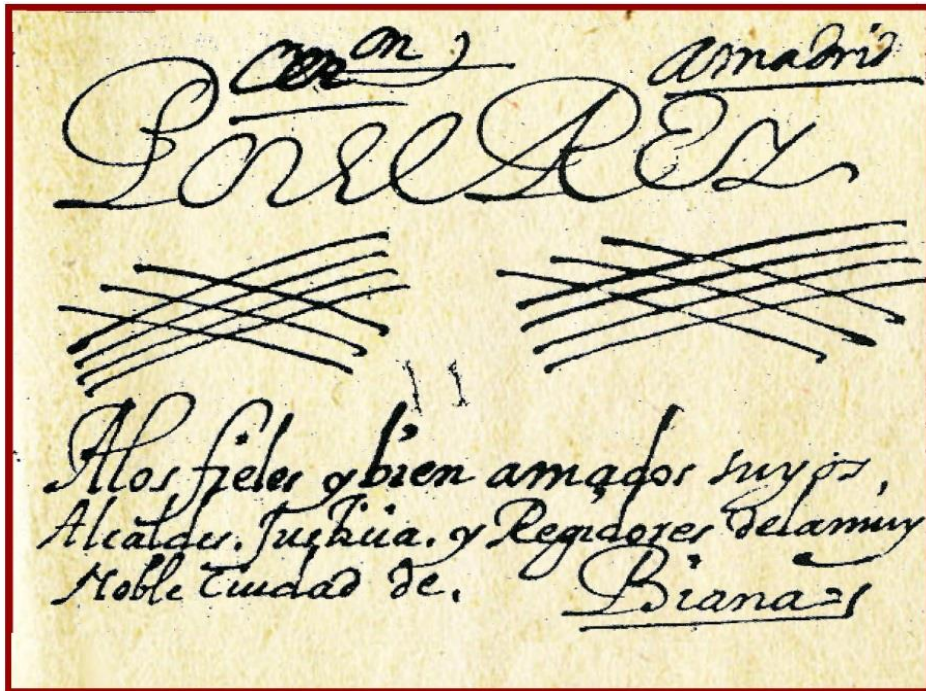 Cer^on amadrid
Por El REy
11
Alos fieles y bien amados suyos,
Alcaldes. Justicia. y Regidores delamuy
Noble Ciudad de. Biana=